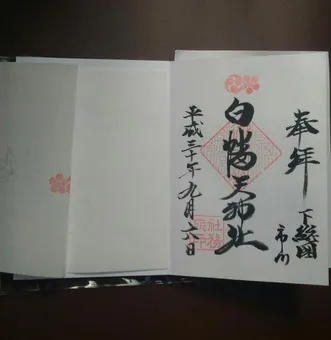 奉拝
下総国
市川
白幡天神社
平成三十年九月六日
社務所印